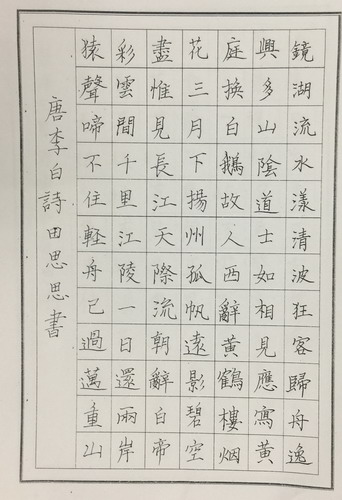 鏡湖流水漾清波狂客歸舟逸
興多山陰道士如相見應寫黃
庭換白鵝故人西辭黃鶴樓烟
花三月下揚州孤帆遠影碧空
盡惟見長江天際流朝辭白帝
彩雲間千里江陵一日還兩岸
猿聲啼不住軽舟已過萬重山
唐李白詩田思思書